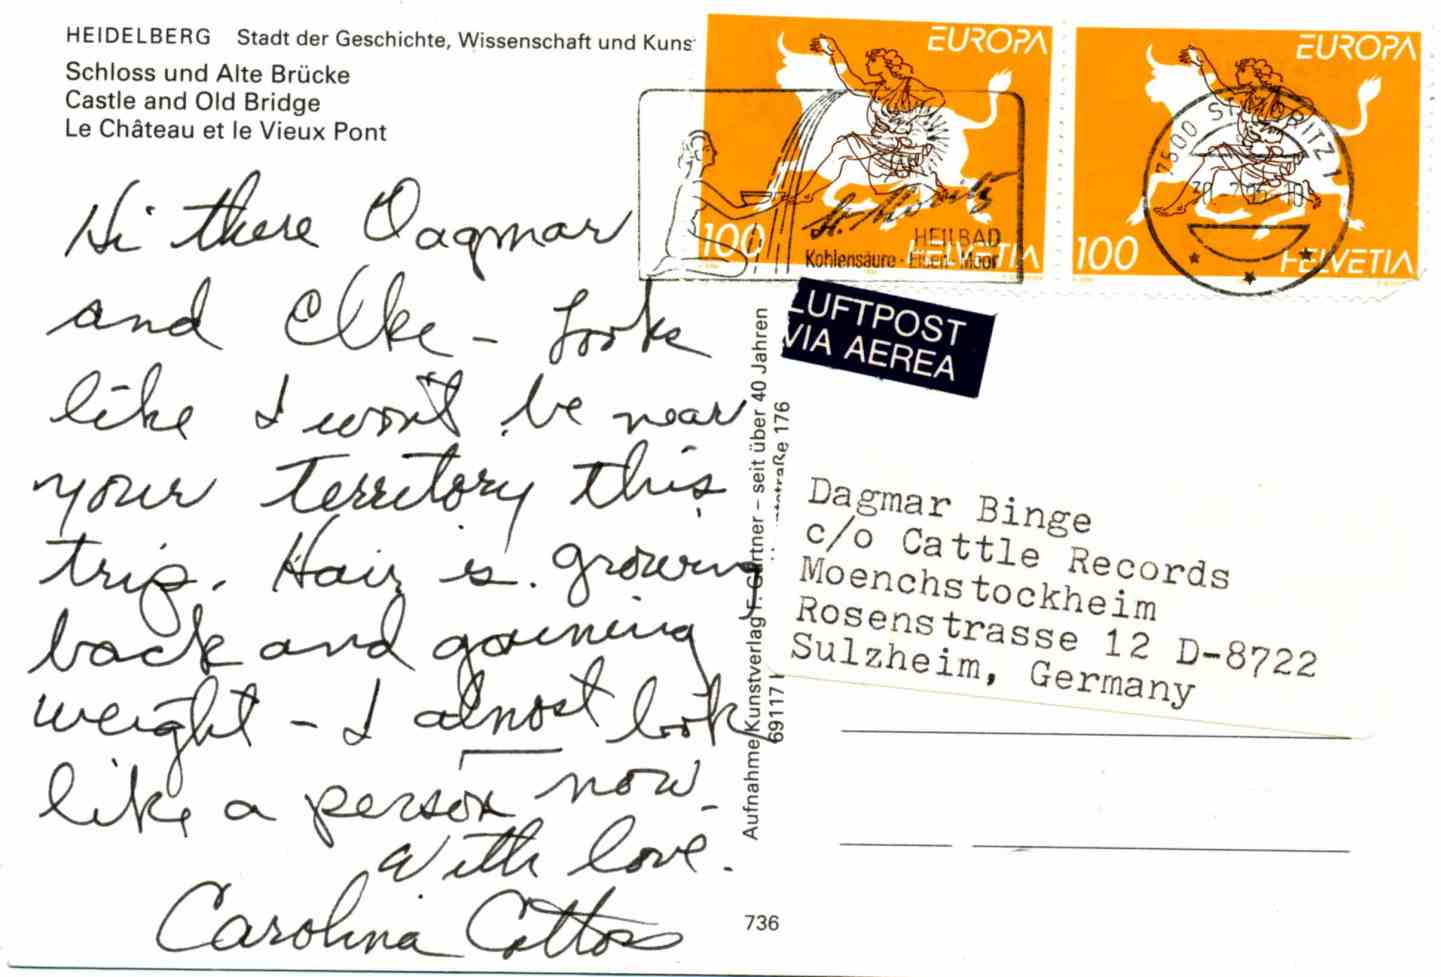 HEIDELBERG Stadt der Geschichte, Wissenschaft und Kuns
Schloss und Alte Brücke
Castle and Old Bridge
Le Château et le Vieux Pont
Hi there Dagmar
and Elke – Looks
like I won't be near
your Territory this
trip. Hair is growing
back and gaining
weight – I almost look
like a person now.
With love.
Carolina Cotton
EUROPA
100
HELVETIA
EUROPA
100
HELVETIA
St. Moritz
HEILBAD
Kohlensäure - Eisen - Moor
7500 ST. MORITZ 1
LUFTPOST
VIA AEREA
Dagmar Binge
c/o Cattle Records
Moenchstockheim
Rosenstrasse 12 D-8722
Sulzheim, Germany
Aufnahme/Kunstverlag F. Gärtner – seit über 40 Jahren
69117
straße 176
736